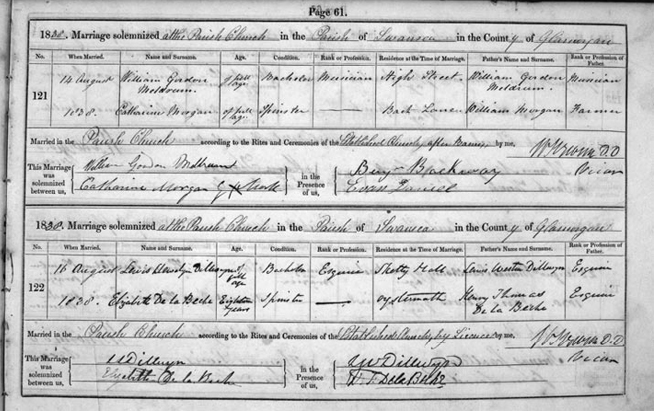 Page 61.
1838. Marriage solemnized at the Parish Church in the Parish of Swansea in the County of Glamorgan
No. When Married. Name and Surname. Age. Condition. Rank or Profession. Residence at the Time of Marriage. Father's Name and Surname. Rank or Profession of Father.
121 14 August William Gordon Meldrum of full age Bachelor Musician High Street William Gordon Meldrum Musician
1838. Catharine Morgan of full age Spinster — Back Lane William Morgan Farmer
Married in the Parish Church according to the Rites and Ceremonies of the Established Church, after Banns by me, D.D
Vicar
This Marriage was solemnized between us, William Gordon Meldrum
Catharine Morgan X Mark
in the Presence of us, Benj Backway
Evan Daniel
1838. Marriage solemnized at the Parish Church in the Parish of Swansea in the County of Glamorgan
No. When Married. Name and Surname. Age. Condition. Rank or Profession. Residence at the Time of Marriage. Father's Name and Surname. Rank or Profession of Father.
122 16 August Lewis Llewelyn Dillwyn of full age Bachelor Esquire Sketty Hall Lewis Weston Dillwyn Esquire
1838. Elizabeth De la Beche Eighteen years Spinster — Oystermouth Henry Thomas De la Beche Esquire
Married in the Parish Church according to the Rites and Ceremonies of the Established Church, by Licence by me, D.D
Vicar
This Marriage was solemnized between us, Dillwyn
Elizabeth De la Beche
in the Presence of us, Dillwyn
De la Beche